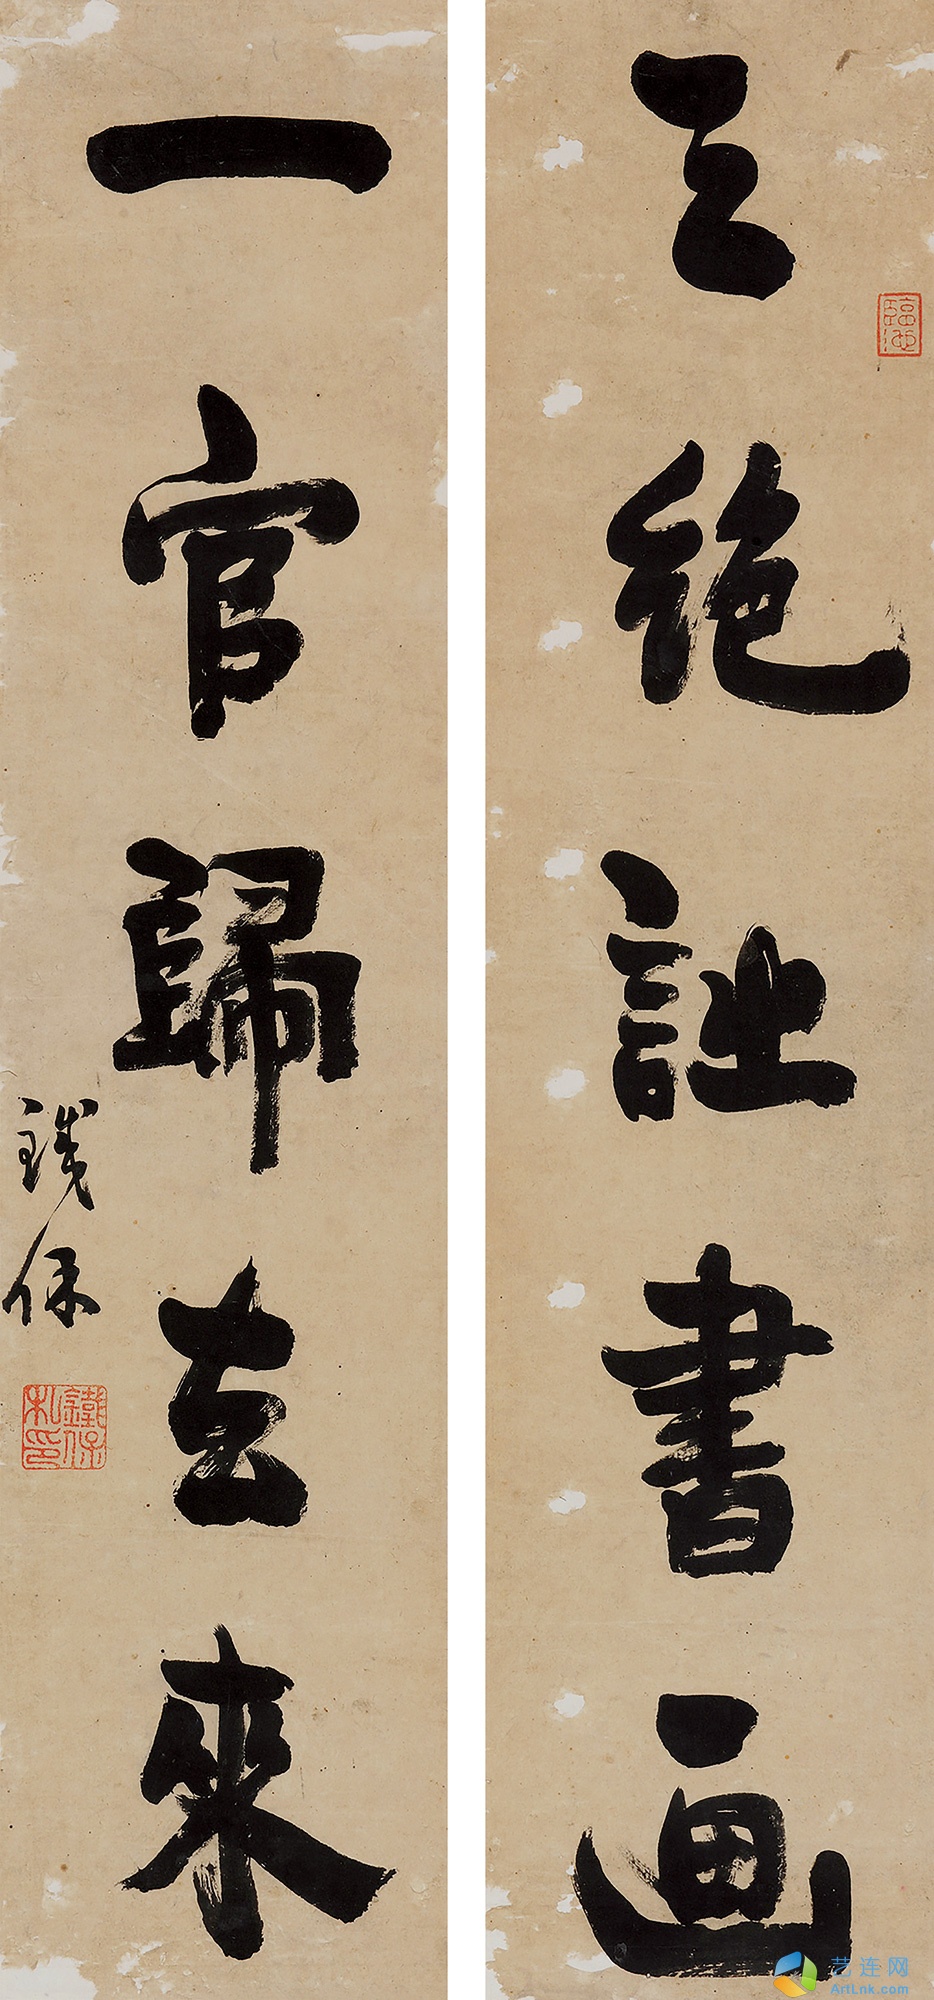 三絕詩書画
臨池
一官歸去來
鐵保
鐵保私印
艺连网
ArtLnk.com